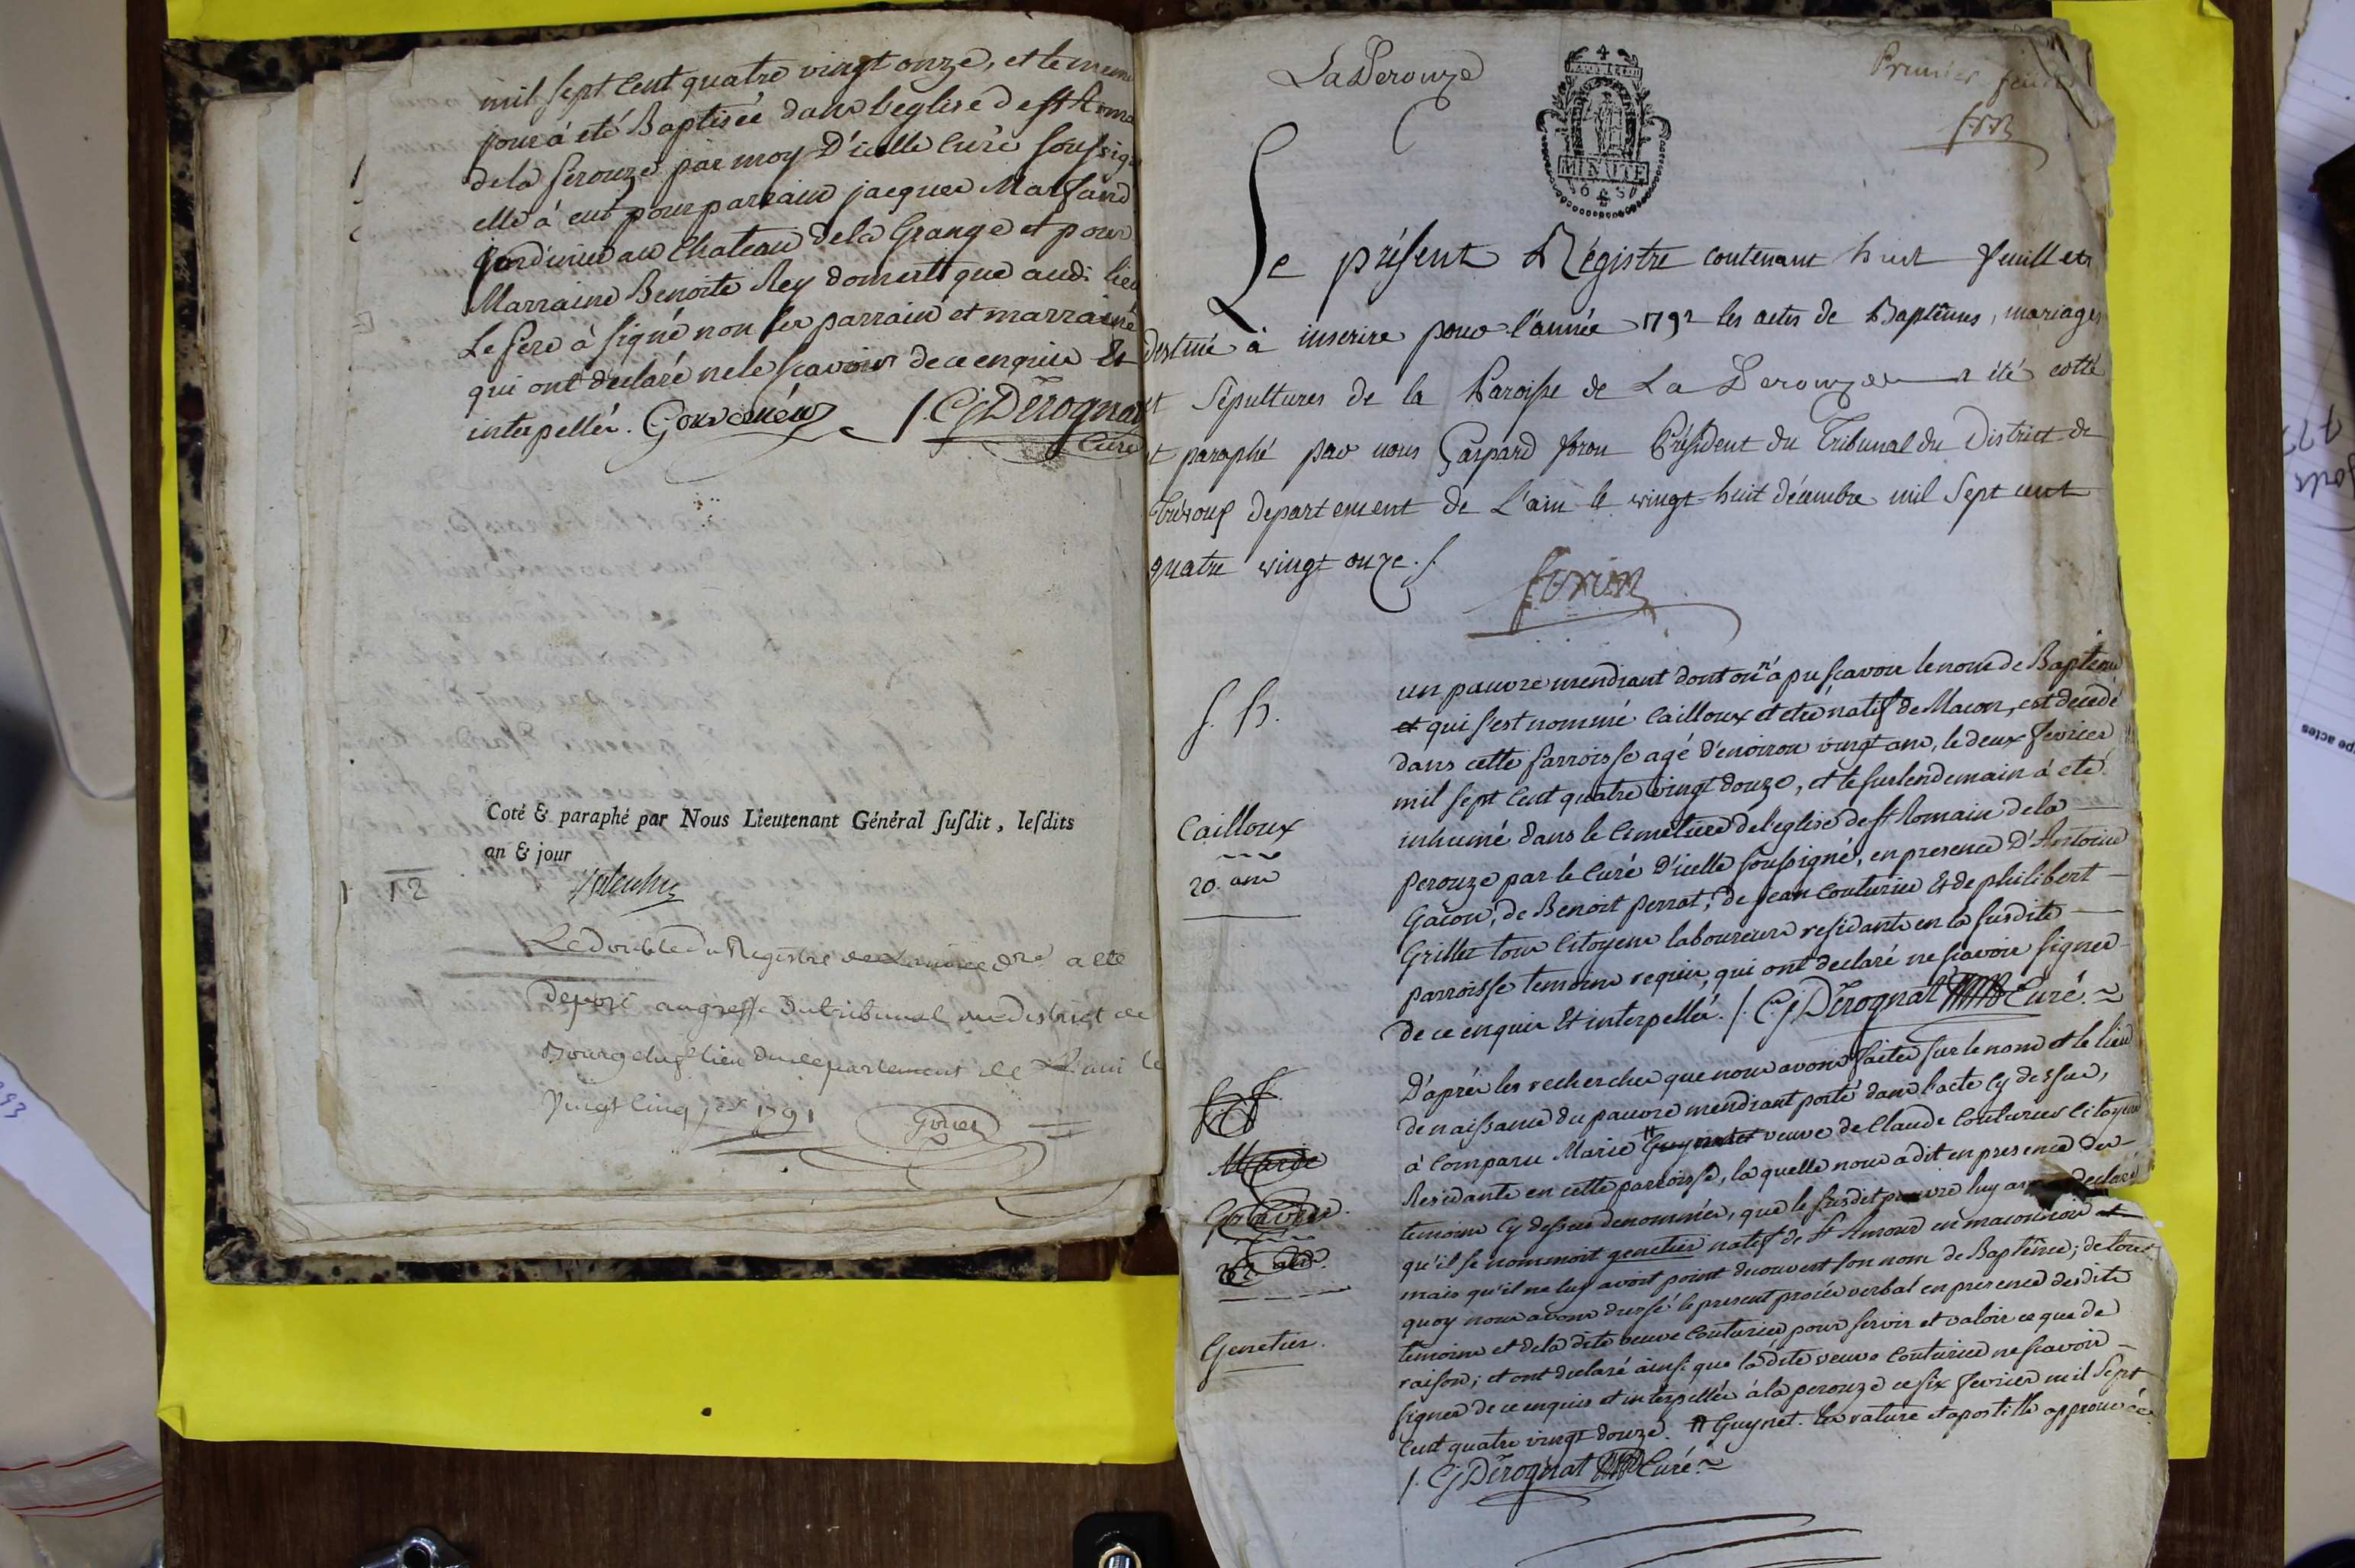 mil sept Cent quatre vingt onze, et le meme
jour à eté Baptisée dans l'eglise de st Roma
dela perouze par moy D'icelle Curé soussign
elle à eut pour parrain jacques Marsand
jardinier au Chateau dela Grange et pour
Marraine Benoite Rey domestique audi lieu
Le Pere à signé non les parrain et marraine
qui ont declaré ne le scavoir de ce enquis Et
interpellés. /. C j Dérognat
Curé
Coté & paraphé par Nous Lieutenant Général susdit, lesdits
an & jour
12
Le double du Registre de L'année dre a eté
deposé au greffe du tribunal du district de
Bourg chef lieu du departement de L'ain le
Vingt Cinq 1791
La Perouze
Premier feuillet
MINUTE
Le présent Régistre contenant huit feuillets
destiné à inscrire pour l'année 1792 les actes de Baptêmes, mariages
et Sépultures de la Paroisse de La Perouze a été cotté
et paraphé par nous Gaspard Président du Tribunal du District de
Trevoux departement de L'ain le vingt-huit décembre mil Sept cent
quatre vingt onze ./.
S. h.
Cailloux
20. ans
un pauvre mendiant dont on n'a pu scavoir le nom de Baptême
et qui s'est nommé Cailloux et etre natif de Macon, est decedé
dans cette parroisse agé d'environ vingt ans, le deux fevrier
mil sept Cent quatre vingt douze, et le surlendemain à eté
inhumé dans le Cimetiere de l'eglise de st Romain dela
perouze par le Curé D'icelle soussigné, en presence D'Antoine
Gacon, de Benoit perrat, de jean Couturier Et de philibert
Grillet tous Citoyens laboureurs residants en la susdite
parroisse temoins requis, qui ont declaré ne scavoir signer
de ce enquis Et interpellés. /. C. j Dérognat Curé.
Marie
32 ans
Genetier.
D'aprés les recherches que nous avons faites sur le nom et le lieu
de naissance du pauvre mendiant porté dans l'acte Cy dessus,
à Comparu Marie # Guynet veuve de Claude Couturier Citoyen
Residante en cette parroisse, la quelle nous a dit en presence des
temoins Cy dessus denommés, que le susdit pauvre luy declaré
qu'il se nommoit genetier natif de St Amour en maconnois et
mais qu'il ne luy avoit point decouvert son nom de Baptême; de tout
quoy nous avons dressé le present procés verbal en presence desdits
temoins et de la dite veuve Couturier pour servir et valoir ce que de
raison; et ont declaré ainsi que la dite veuve Couturier ne scavoir
signer de ce enquis et interpellés à la perouze ce six fevrier mil Sept
Cent quatre vingt douze. # Guynet. les rature et apostille approuvées
/. C j Dérognat Curé